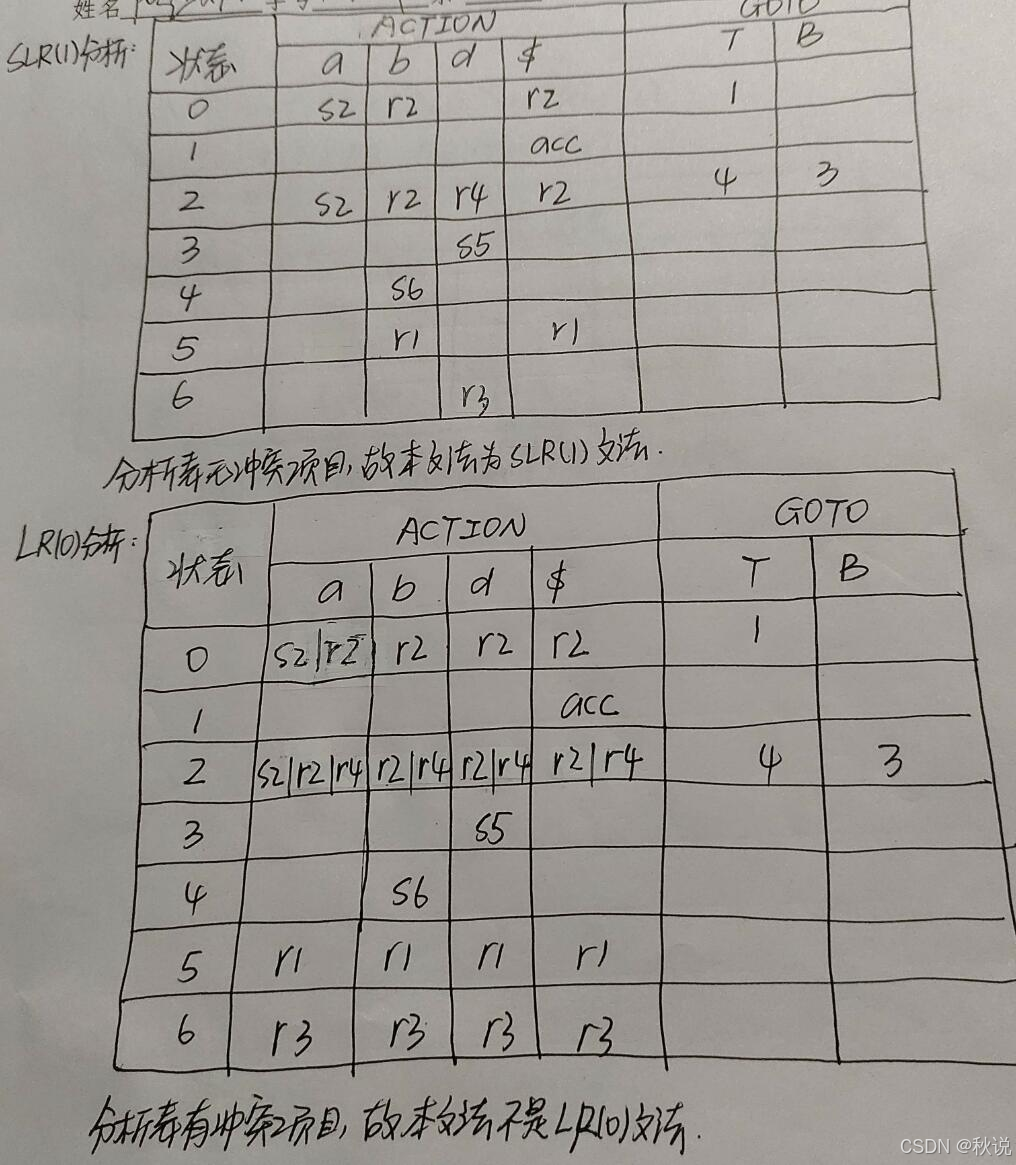 姓名
ACTION GOTO
SLR(1)分析: 状态 a b d $ T B
0 s2 r2 r2 1
1 acc
2 s2 r2 r4 r2 4 3
3 s5
4 s6
5 r1 r1
6 r3
分析表无冲突项目,故本文法为SLR(1)文法.
LR(0)分析: 状态 ACTION GOTO
a b d $ T B
0 s2|r2 r2 r2 r2 1
1 acc
2 s2|r2|r4 r2|r4 r2|r4 r2|r4 4 3
3 s5
4 s6
5 r1 r1 r1 r1
6 r3 r3 r3 r3
分析表有冲突项目,故本文法不是LR(0)文法.
CSDN @秋说